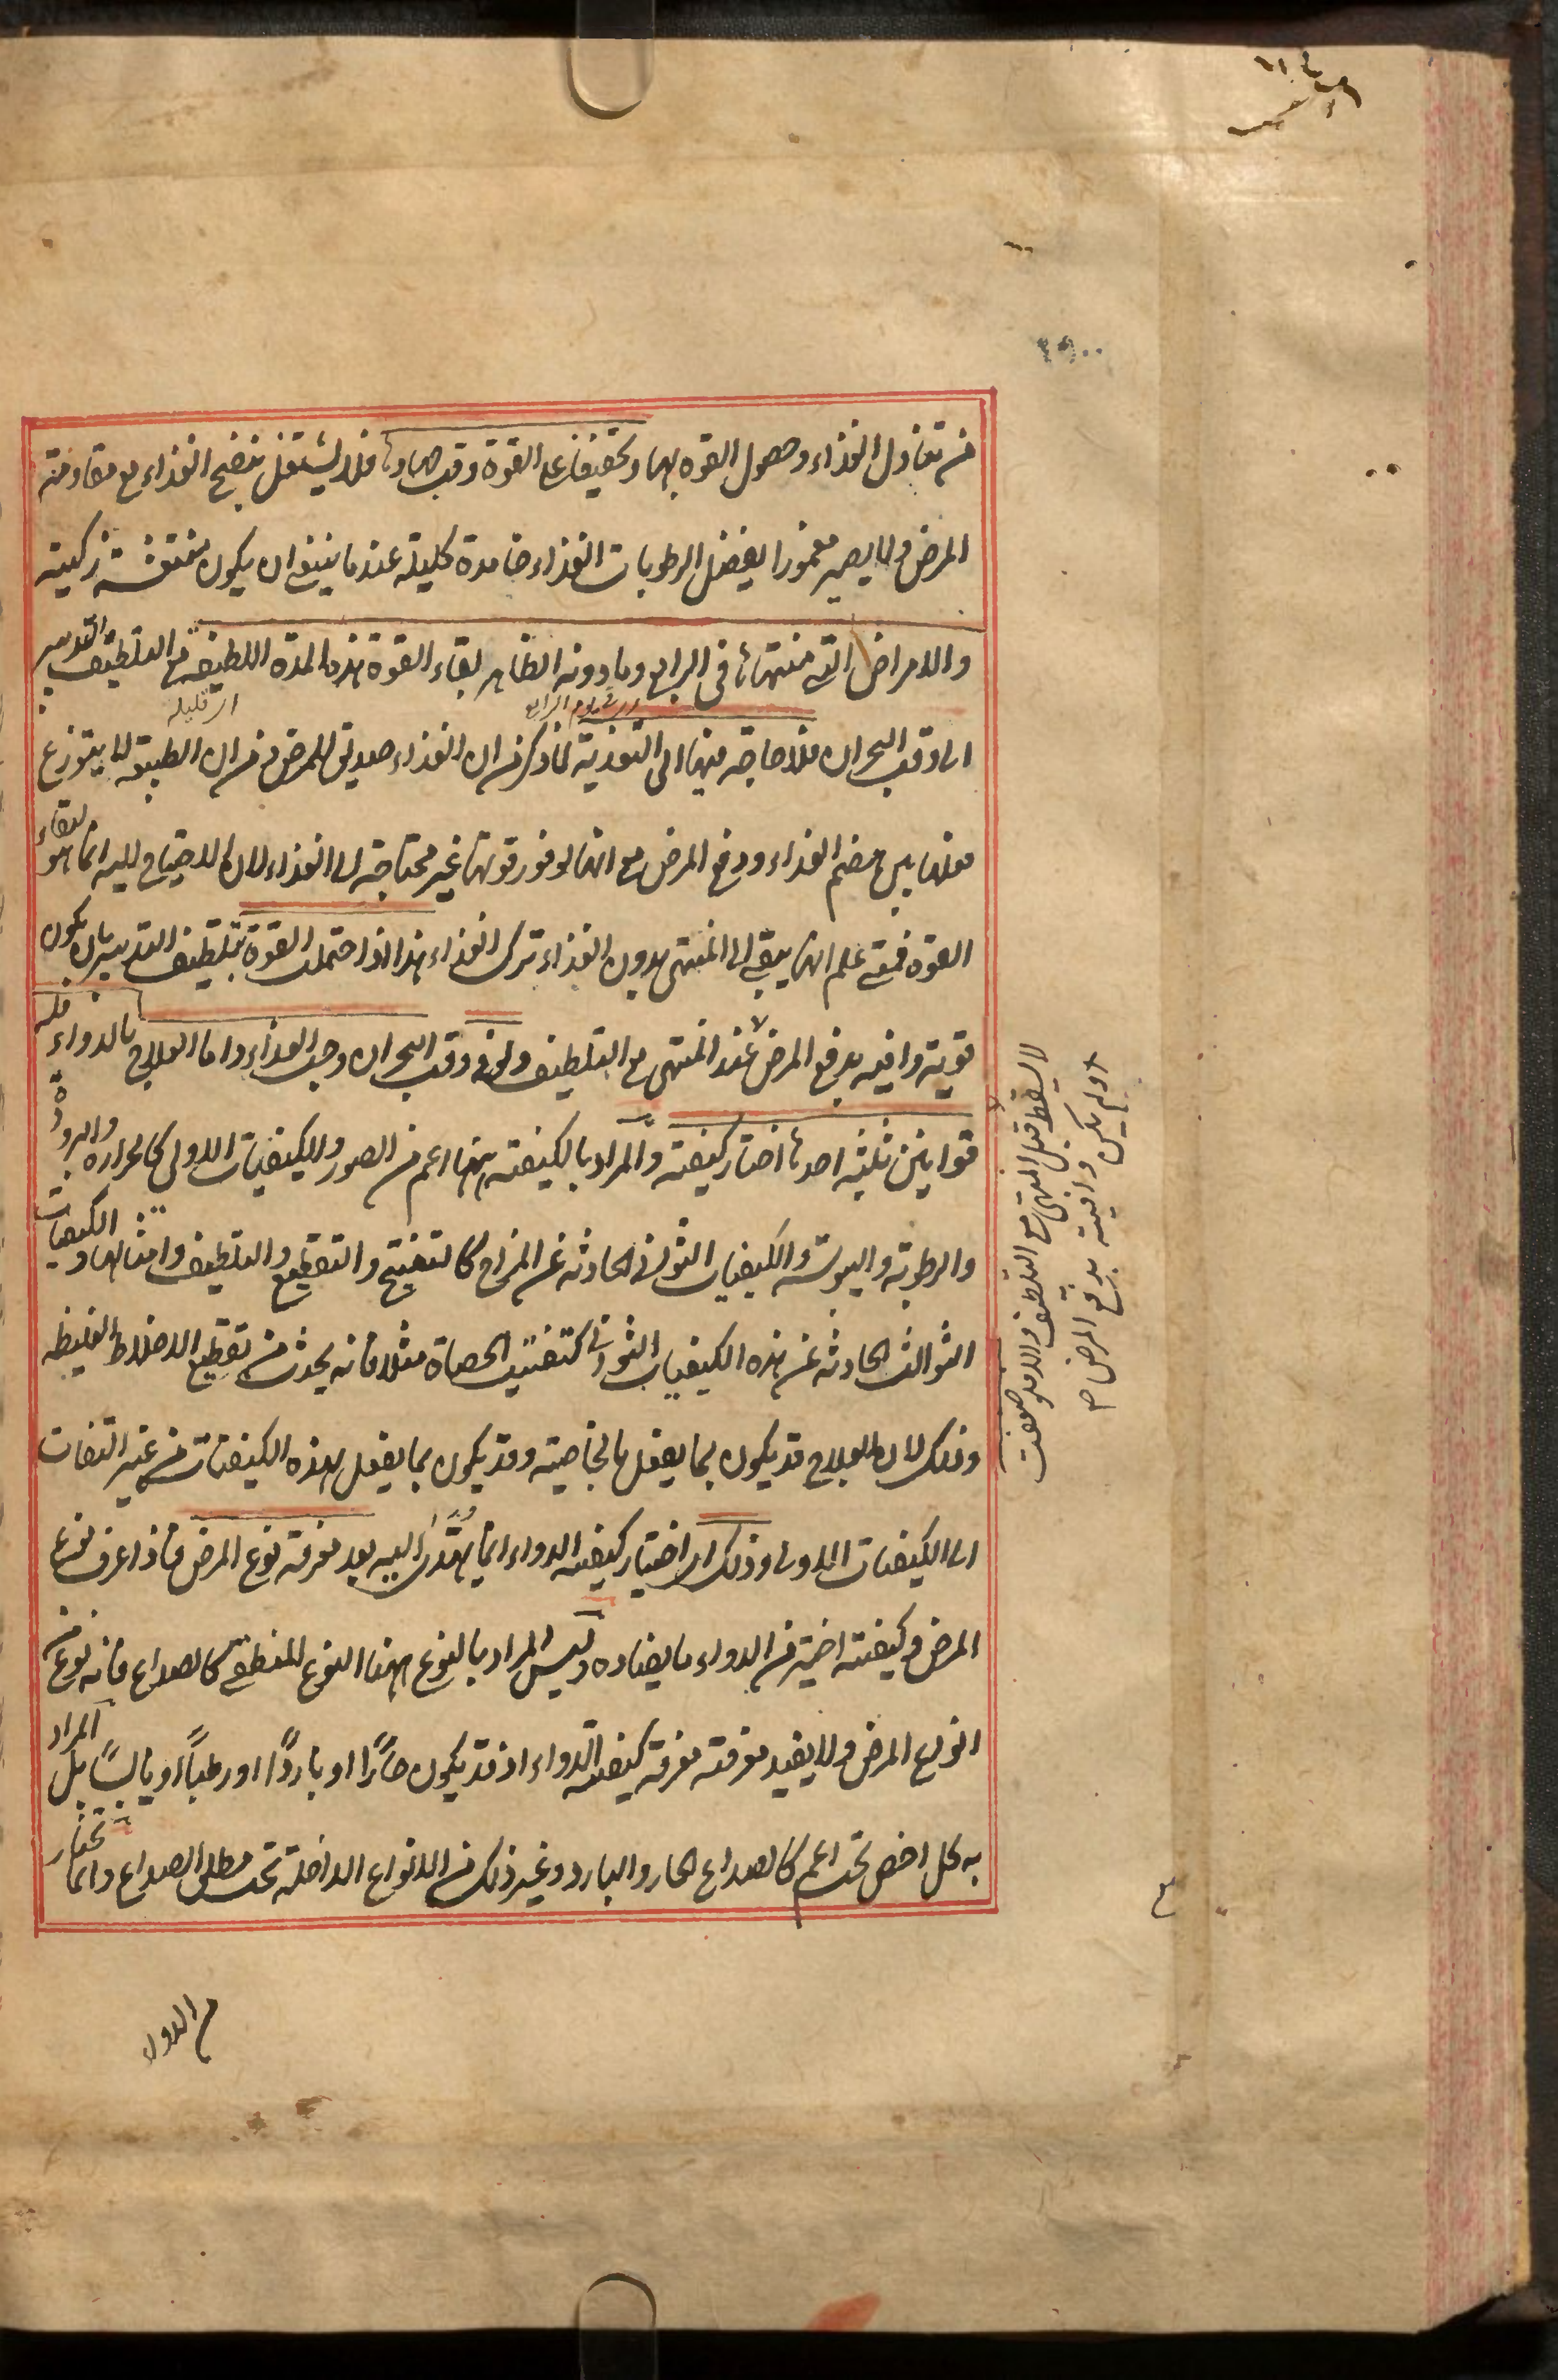 من تناول الغذاء وحصول القوة بها وتخفيفا على القوة وقت جهادها فلا يشتغل بنضج الغذاء مع مقاومة
المرض ولا يصير مغمورا بفضل الرطوبات الغذاء خامدة كليلة عند ما ينبغي ان يكون
والامراض التي منتهاها في الرابع وما دونه الظاهر بقاء القوة هذه المدة اللطيفة مع التلطيف التدبير
اى قليلة
الى وقت البحران فلا حاجة فيها الى التغذية لما ذكر من ان الغذاء صديق للمرض من ان الطبيعة لا يتوزع
فعلها بين هضم الغذاء ودفع المرض مع انها لوفور قوتها غير محتاجة الى الغذاء لان الاحتياج اليه انما هو لبقاء
القوة فمتى علم انها يبقى الى المنتهى بدون الغذاء ترك الغذاء هذا اذا احتملت القوة تلطيف التدبير بان يكون
قوية وافية بدفع المرض عند المنتهى مع التلطيف وقت البحران وجب الغذاء واما العلاج بالدواء فله
قوانين ثلثة احدها اختيار كيفيته والمراد بالكيفية ههنا اعم من الصور والكيفيات الاولى كالحرارة والبرودة
والرطوبة واليبوسة والكيفيات الثواني الحادثة عن المزاج كالتفتيح والتقطيع والتلطيف وامثالها والكيفيات
الثوالث الحادثة عن هذه الكيفيات الثواني كتفتيت الحصاة مثلا فانه يحدث من تقطيع الاخلاط الغليظة
وذلك لان العلاج قد يكون بما يفعل بالخاصية وقد يكون بما يفعل بهذه الكيفيات من غير التفات
الى الكيفيات الاولى وذلك اى اختيار كيفية الدواء انما يهتدى اليه بعد معرفة نوع المرض فاذا عرف نوع
المرض وكيفيته اختير من الدواء ما يضاده وليس المراد بالنوع ههنا النوع المنطقى كالصداع فانه نوع من
انواع المرض ولا يفيد معرفته معرفة كيفية الدواء اذ قد يكون حارًا او باردًا او رطبًا او يابسًا بل المراد
به كل اخص تحت اعم كالصداع الحار والبارد وغير ذلك من الانواع الداخلة تحت مطلق الصداع وانما يختار
لا يسقط قبل المنتهى مع التلطيف والا فلو ضعفت
او لم يكن وافية بدفع المرض